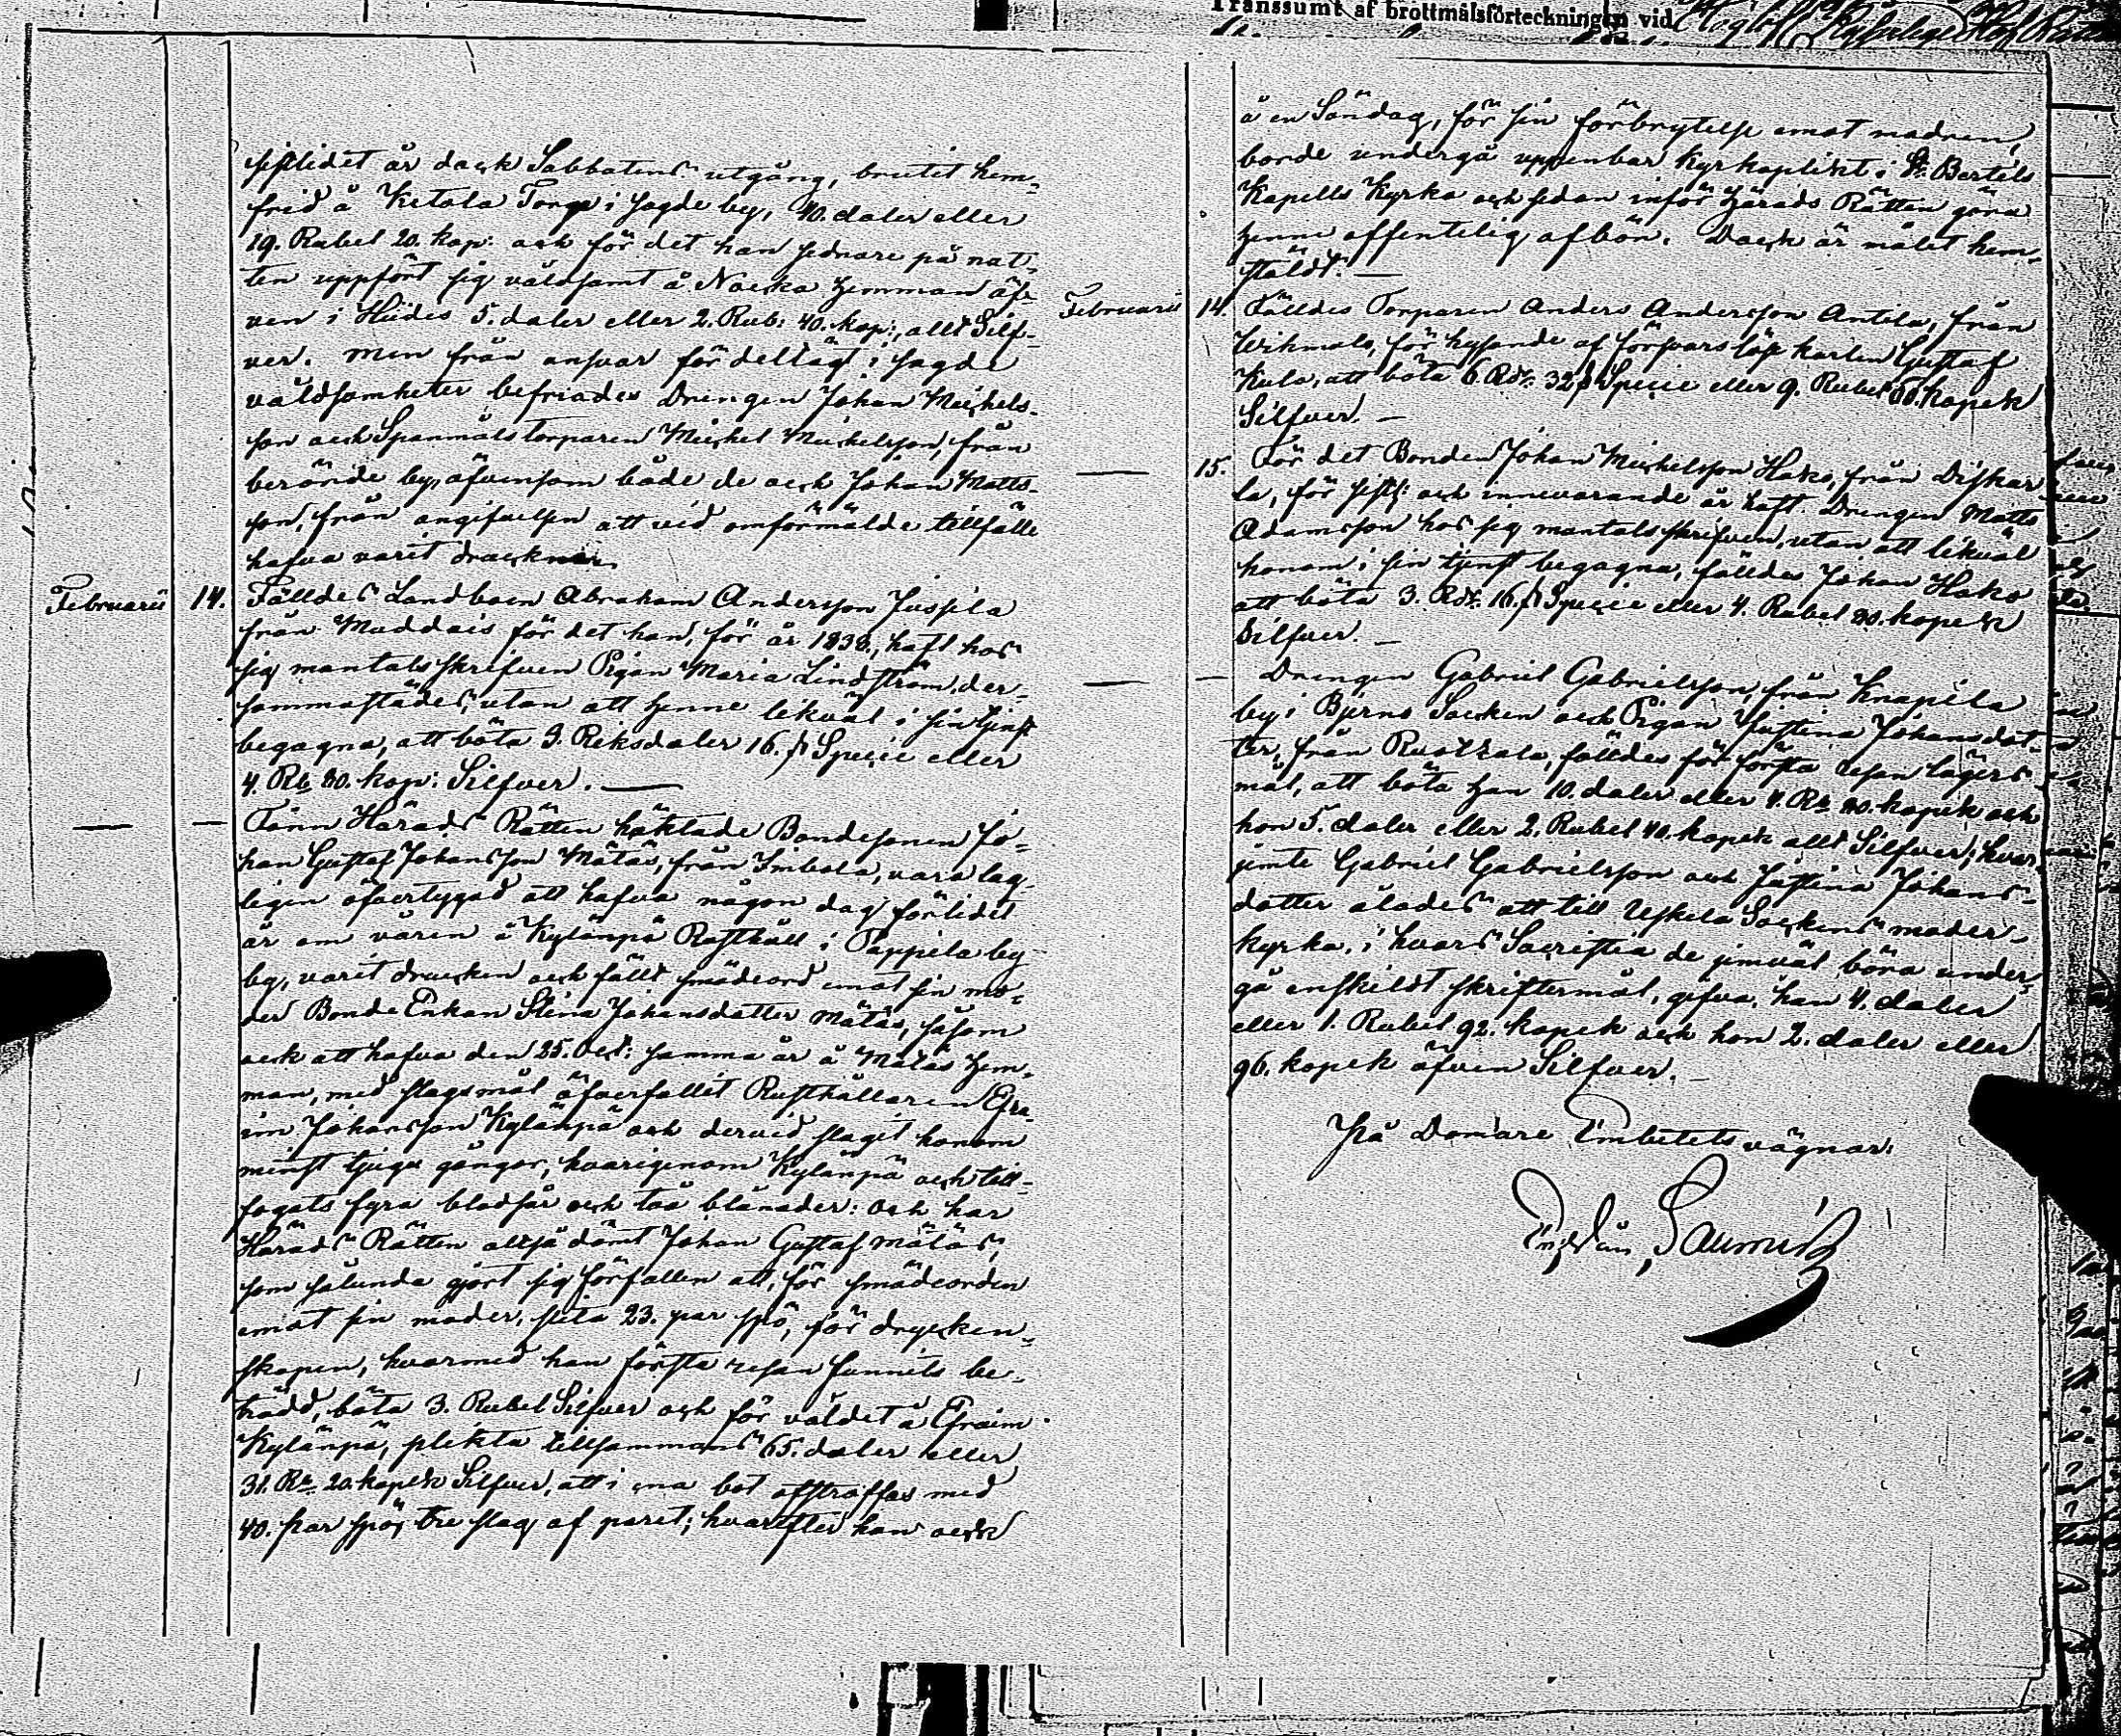 Transsumt af brottmålsförteckningen vid
sistlidet år dock Sabbatens utgång, brutit hem-
frid å Ketala Torp i sagde by, 40. daler eller
19. Rubel 20. kop: och för det han sednare på nat-
ten uppfört sig våldsamt å Nacka Hemman äf-
ven i Hüdis 5. daler eller 2. Rub: 40. kop:, allt Silf-
ver. Men från ansvar för deltagt i sagde
våldsamheter befriades Drengen Johan Michels-
son och Spanmåls torparen Michel Michelsson, från
berörde by, äfvensom både de och Johan Matts-
son, från angifvelsen att vid omförmälde tillfälle
hafva varit drucknar.
Februarii 14. Fälldes Landboen Abraham Andersson Jussila
från Muddais för det han, för år 1838, haft hos
sig mantalsskrifven Pigan Maria Lindström, der-
sammastädes, utan att henne likväl i sin tjenst
begagna, att böta 3. Riksdaler 16. ß Specie eller
4. Rb 80. kop: Silfver. —
— — Fann Härads Rätten häktade Bondesonen Jo-
han Gustaf Johansson Mätäs, från Imbola, vara lag-
ligen öfvertygad att hafva någon dag förlidet
år om våren å Kylänpä Rusthåll i Pappila by
by, varit drucken och fällt smädeord emot sin mo-
der Bonde Enkan Stina Johansdotter Mätäs, såsom
ock att hafva den 25. Oct: samma år å Mätäs Hem-
man, med slagsmål öfverfallit Rusthållaren Efra-
im Johansson Kylänpä och dervid slagit honom
minst tjugu gångor, hvarigenom Kylänpä ock till-
fogats fyra blodsår och två blånader: och har
Härads Rätten altså dömt Johan Gustaf Mätäs,
som sålunda gjort sig förfallen att, för smädeorden
emot sin moder, slita 23. par spö, för drycken-
skapen, hvarmed han första resan funnits be-
trädd, böta 3. Rubel Silfver och för våldet å Efraim
Kylänpä, plikta tillsammans 65. daler eller
31. Rb 20. kopek Silfver, att i ena bot afstraffas med
40. par spö, tre slag af paret; hvarefter han ock
å en Söndag, för sin förbrytelse emot modren,
borde undergå uppenbar Kyrkoplikt i St. Bertils
Kapells Kyrka och sedan inför Härads Rätten göra
henne offentelig afbön. Dock är målet hem-
stäldt. —
Februarii 14. Fälldes Torparen Anders Andersson Antila, från
Wihmalo, för hysande af försvarslöse karlen Gustaf
Kulo, att böta 6. Rdr. 32 ß Specie eller 9. Rubel 60. kopek
Silfver. —
— 15. För det Bonden Johan Michelsson Hako, från Diskar-
la, för sistl: och innevarande år haft Drengen Matts
Adamsson hos sig mantalsskrifven, utan att likväl
honom i sin tjenst begagna, fälldes Johan Hako
att böta 3. Rdr. 16. ß Specie eller 4. Rubel 80. kopek
Silfver. —
— — Drengen Gabriel Gabrielsson från Knapila
by i Bjerno Socken och Pigan Justina Johansdot-
ter, från Ruotzala, fälldes för första resan lägers-
mål, att böta han 10. daler eller 4. Rb 80. kopek och
hon 5. daler eller 2. Rubel 40. kopek allt Silfver; hvar-
jemte Gabriel Gabrielsson och Justina Johans-
dotter ålades att till Uskela Sockens moder-
kyrka, i hvars Sacristia de jemväl böra under-
gå enskildt skriftermål, gifva, han 4. daler
eller 1. Rubel 92. kopek och hon 2. daler eller
96. kopek äfven Silfver. —
På Domare Embetets vägnar: